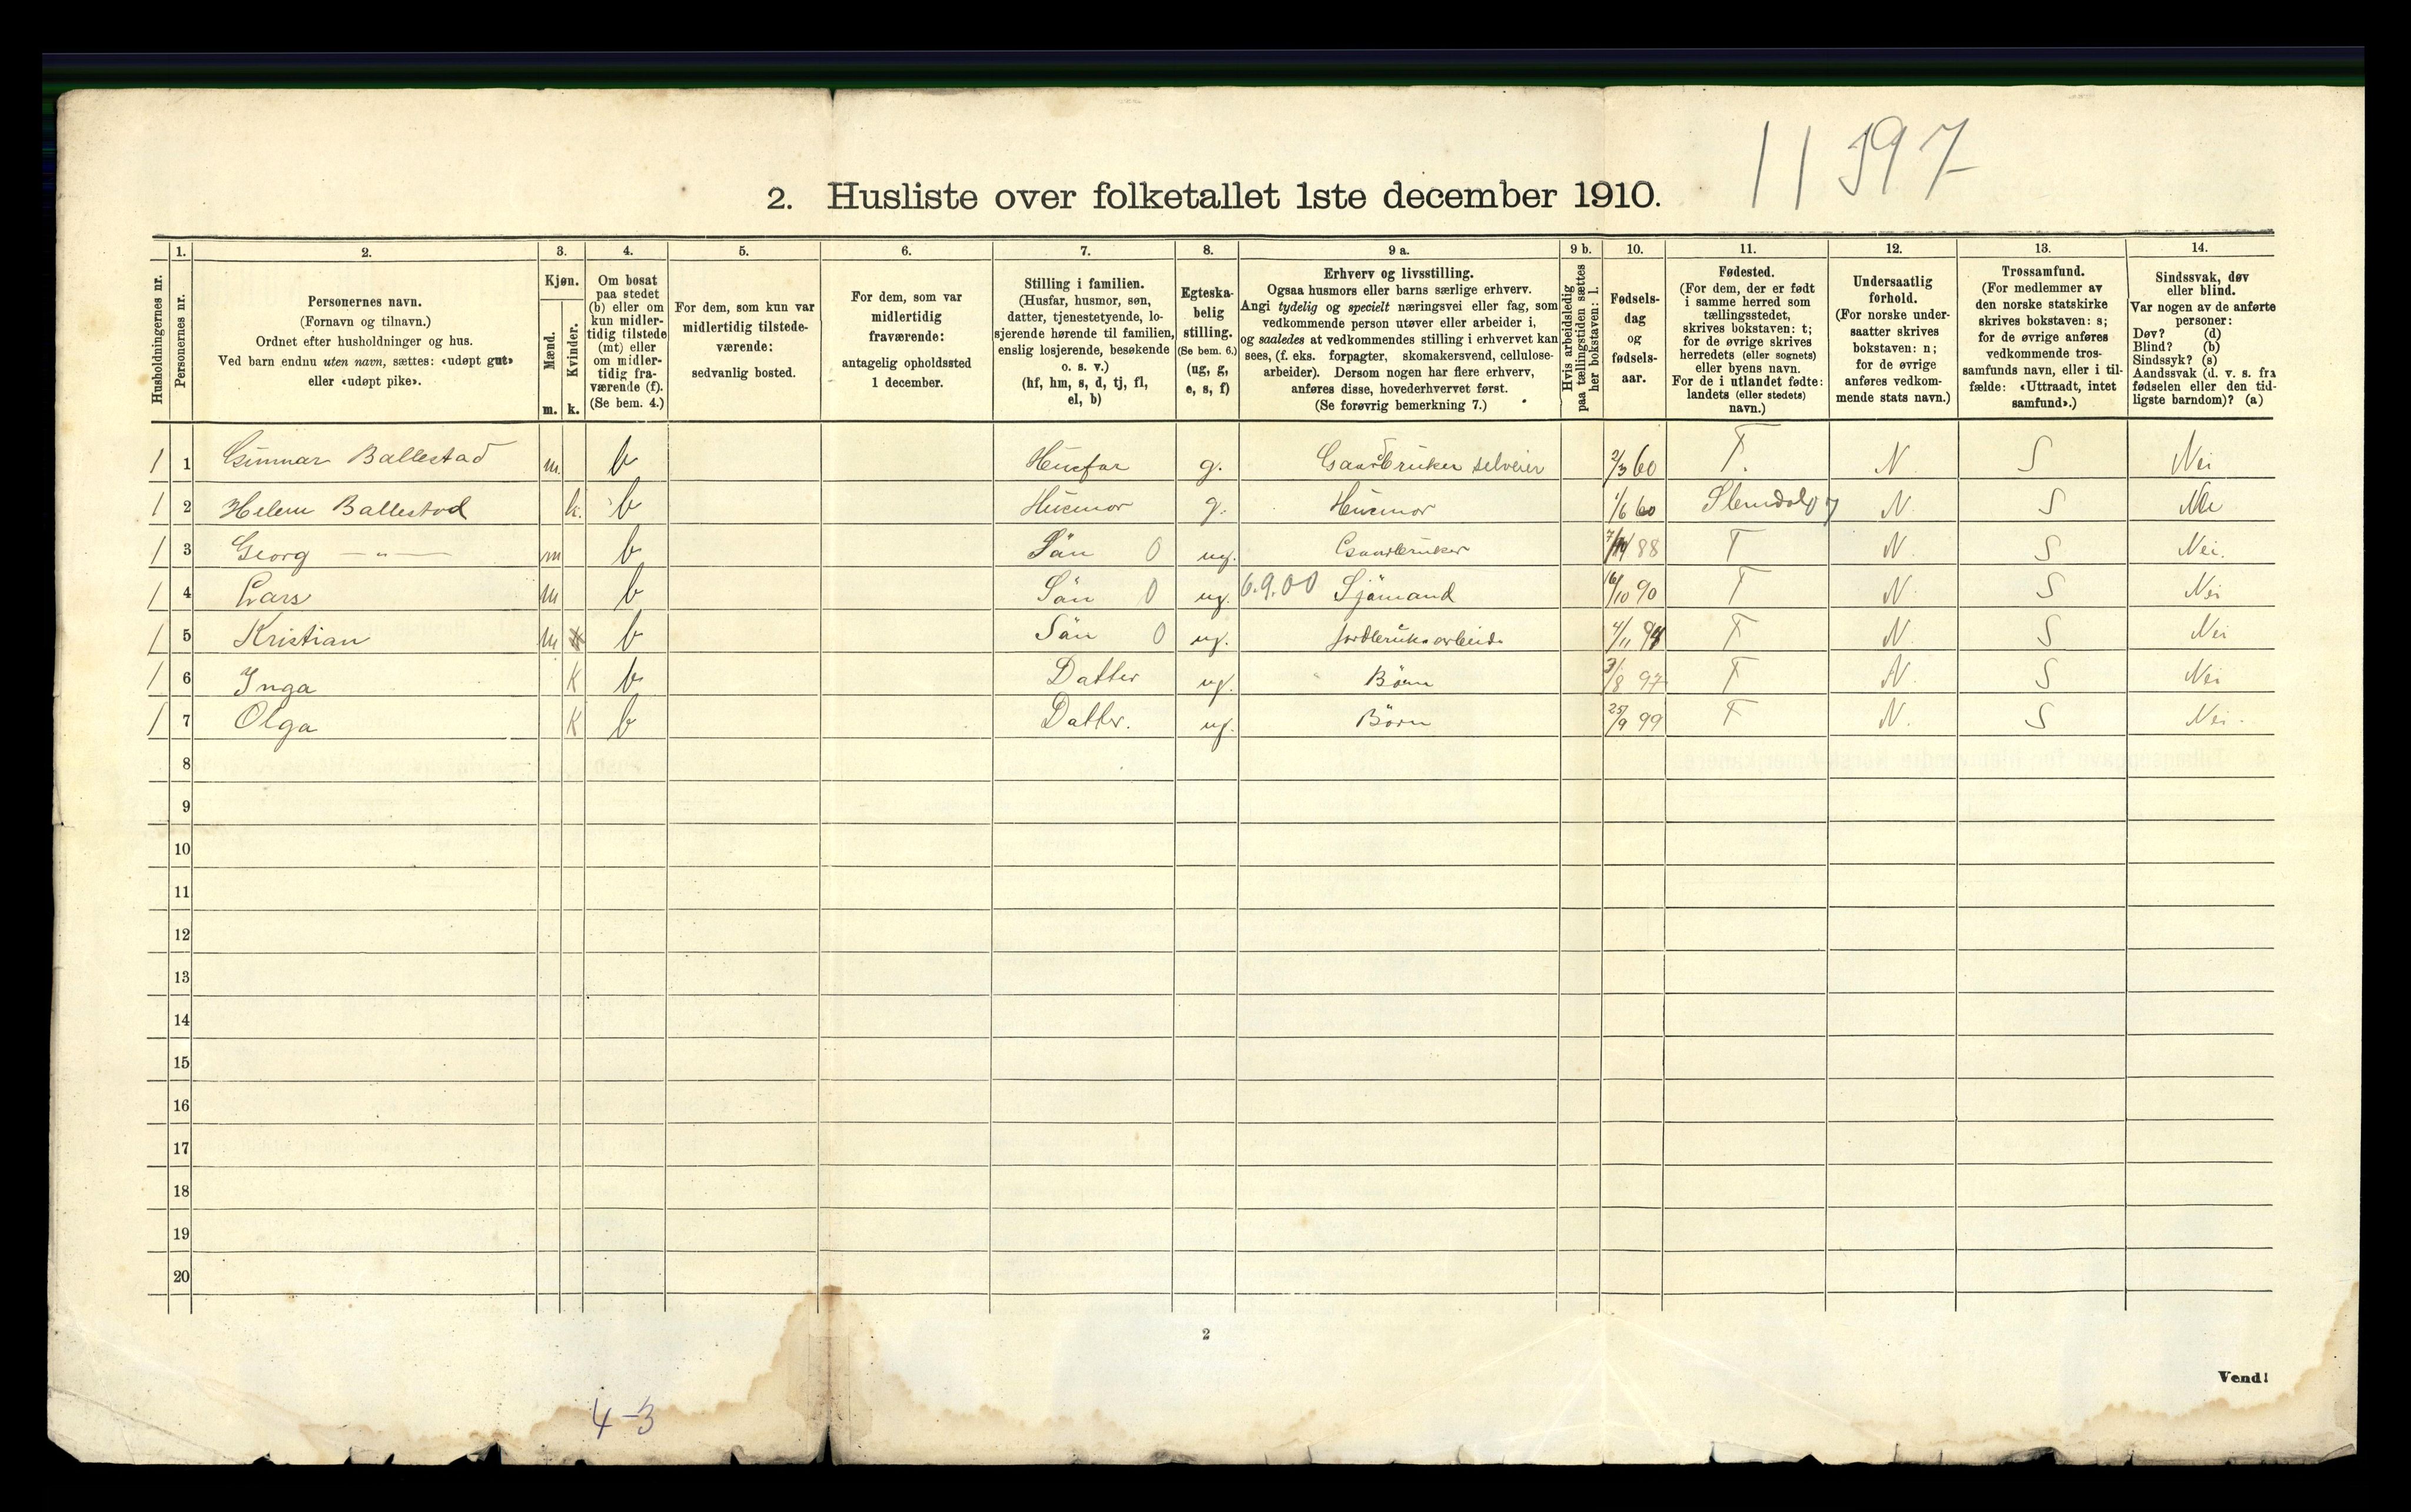 11 397
2. Husliste over folketallet 1ste december 1910.
Husholdningernes nr.
1.
Personernes nr.
2.
Personernes navn.
(Fornavn og tilnavn.)
Ordnet efter husholdninger og hus.
Ved barn endnu uten navn, sættes: «udøpt gut»
eller «udøpt pike».
3.
Kjøn.
Mænd.
Kvinder.
m. k.
4.
Om bosat
paa stedet
(b) eller om
kun midler-
tidig tilstede
(mt) eller
om midler-
tidig fra-
værende (f).
(Se bem. 4.)
5.
For dem, som kun var
midlertidig tilstede-
værende:
sedvanlig bosted.
6.
For dem, som var
midlertidig
fraværende:
antagelig opholdssted
1 december.
7.
Stilling i familien.
(Husfar, husmor, søn,
datter, tjenestetyende, lo-
sjerende hørende til familien,
enslig losjerende, besøkende
o. s. v.)
(hf, hm, s, d, tj, fl,
el, b)
8.
Egteska-
belig
stilling.
(Se bem. 6.)
(ug, g,
e, s, f)
9 a.
Erhverv og livsstilling.
Ogsaa husmors eller barns særlige erhverv.
Angi tydelig og specielt næringsvei eller fag, som
vedkommende person utøver eller arbeider i,
og saaledes at vedkommendes stilling i erhvervet kan
sees, (f. eks. forpagter, skomakersvend, cellulose-
arbeider). Dersom nogen har flere erhverv,
anføres disse, hovederhvervet først.
(Se forøvrig bemerkning 7.)
9 b.
Hvis arbeidsledig
paa tællingstiden sættes
her bokstaven: l.
10.
Fødsels-
dag
og
fødsels-
aar.
11.
Fødested.
(For dem, der er født
i samme herred som
tællingsstedet,
skrives bokstaven: t;
for de øvrige skrives
herredets (eller sognets)
eller byens navn.
For de i utlandet fødte:
landets (eller stedets)
navn.)
12.
Undersaatlig
forhold.
(For norske under-
saatter skrives
bokstaven: n;
for de øvrige
anføres vedkom-
mende stats navn.)
13.
Trossamfund.
(For medlemmer av
den norske statskirke
skrives bokstaven: s;
for de øvrige anføres
vedkommende tros-
samfunds navn, eller i til-
fælde: «Uttraadt, intet
samfund».)
14.
Sindssvak, døv
eller blind.
Var nogen av de anførte
personer:
Døv? (d)
Blind? (b)
Sindssyk? (s)
Aandssvak (d. v. s. fra
fødselen eller den tid-
ligste barndom)? (a)
1 1 Gunnar Ballestad m. b Husfar g. Gaardbruker selveier 2/3 60 T. N. S Nei
1 2 Helene Ballestad k. b Husmor g. Husmor 1/6 60 N. S
1 3 Georg — " — m b Sön 0 ug. Gaardbruker 88 T N. S Nei.
1 4 Lars m b Sön 0 ug. 6.9.00 Sjömand 16/10 90 T N. S Nei
1 5 Kristian m b Sön 0 ug. jordbruksarbeid. 4/11 94 T N. S Nei
1 6 Inga K b Datter ug. Börn 3/8 97 T N. S Nei
1 7 Olga K b Datter. ug. Börn 25/9 99 T N. S Nei.
8
9
10
11
12
13
14
15
16
17
18
19
20
2
Vend!
4-3